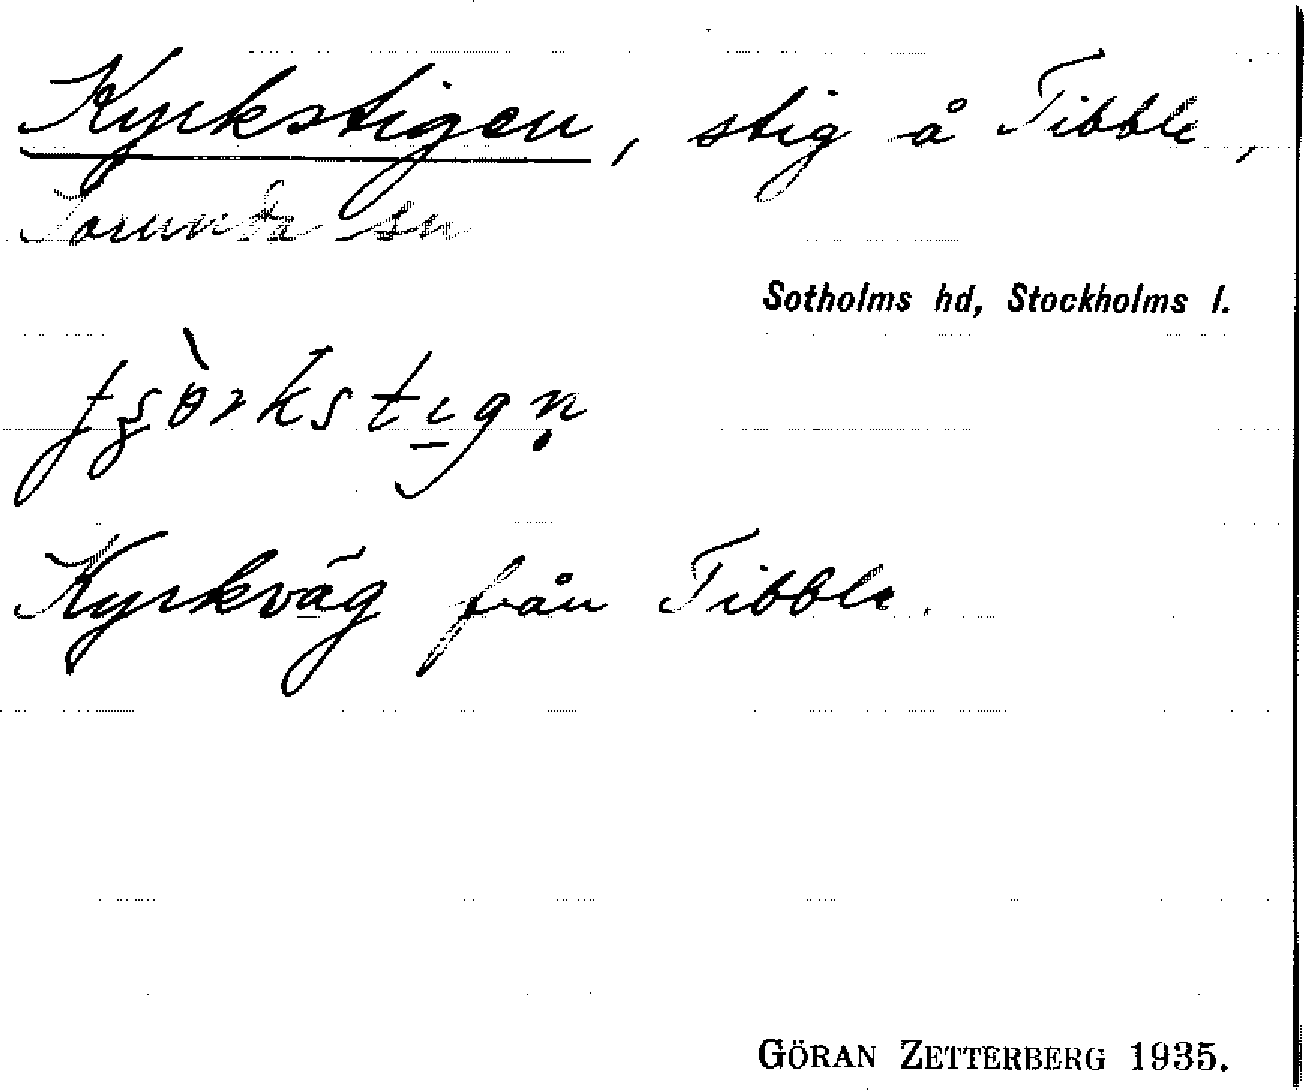 Kyrkstigen, stig å Tibble,
Torunda sn
Sotholms hd, Stockholms l.
Kyrkväg från Tibble.
GÖRAN ZETTERBERG 1935.